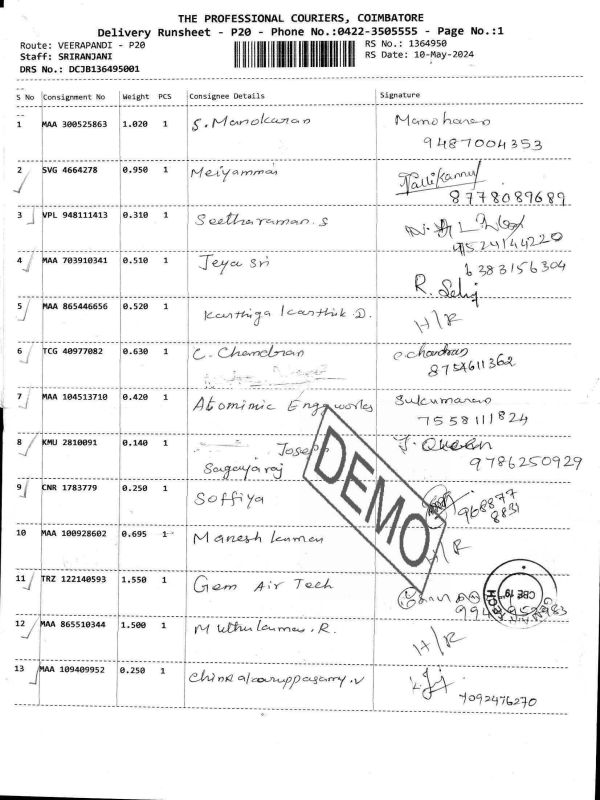 THE PROFESSIONAL COURIERS, COIMBATORE
Delivery Runsheet - P20 - Phone No.:0422-3505555 - Page No.:1
Route: VEERAPANDI - P20 RS No.: 1364950
Staff: SRIRANJANI RS Date: 10-May-2024
DRS No.: DCJB136495001
S No Consignment No Weight PCS Consignee Details Signature
1 MAA 300525863 1.020 1 S. Manokaran Manoharan
9487004353
2 SVG 4664278 0.950 1 Meiyammai
8778089689
3 VPL 948111413 0.310 1 Seetharaman. S
9524144220
4 MAA 703910341 0.510 1 Jeya Sri 6383156304
R.
5 MAA 865446656 0.520 1 Karthiga Karthik D. H/R
6 TCG 40977082 0.630 1 C. Chandran
8754611362
7 MAA 104513710 0.420 1 Atomimic Enggworks Sukumaran
7558111824
8 KMU 2810091 0.140 1 Joseph J. Queen
Sagayaraj 9786250929
9 CNR 1783779 0.250 1 Soffiya 968877
8831
10 MAA 100928602 0.695 1 Manesh kumar H/R
11 TRZ 122140593 1.550 1 Gem Air Tech
12 MAA 865510344 1.500 1 Muthukumar. R. H/R
13 MAA 109409952 0.250 1 Chinnakaruppasamy. V
7092476270
DEMO
CBE 19